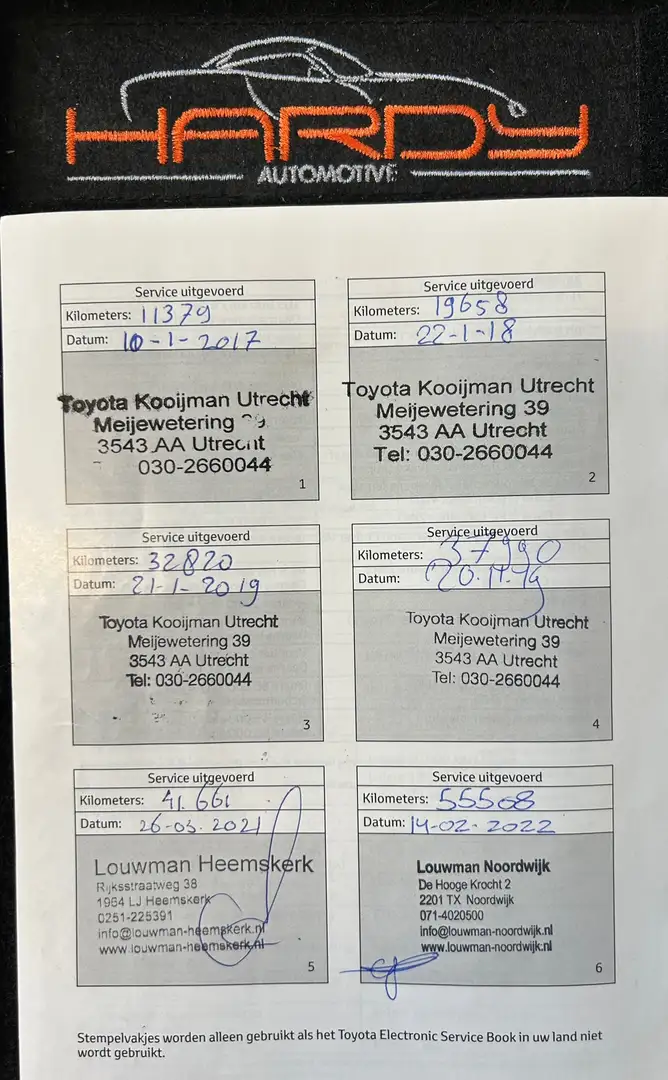 HARDY
AUTOMOTIVE
Service uitgevoerd
Kilometers: 11379
Datum: 10-1-2017
Toyota Kooijman Utrecht
Meijewetering
3543 AA Utrecht
030-2660044
1
Service uitgevoerd
Kilometers: 19658
Datum: 22-1-18
Toyota Kooijman Utrecht
Meijewetering 39
3543 AA Utrecht
Tel: 030-2660044
2
Service uitgevoerd
Kilometers: 32820
Datum: 21-1-2019
Toyota Kooijman Utrecht
Meijewetering 39
3543 AA Utrecht
Tel: 030-2660044
3
Service uitgevoerd
Kilometers: 37990
Datum: 20.11.19
Toyota Kooijman Utrecht
Meijewetering 39
3543 AA Utrecht
Tel: 030-2660044
4
Service uitgevoerd
Kilometers: 41.661
Datum: 26-03.2021
Louwman Heemskerk
Rijksstraatweg 38
1964 LJ Heemskerk
0251-225391
info@louwman-heemskerk.nl
www.louwman-heemskerk.nl
5
Service uitgevoerd
Kilometers: 55568
Datum: 14-02-2022
Louwman Noordwijk
De Hooge Krocht 2
2201 TX Noordwijk
071-4020500
info@louwman-noordwijk.nl
www.louwman-noordwijk.nl
6
Stempelvakjes worden alleen gebruikt als het Toyota Electronic Service Book in uw land niet
wordt gebruikt.